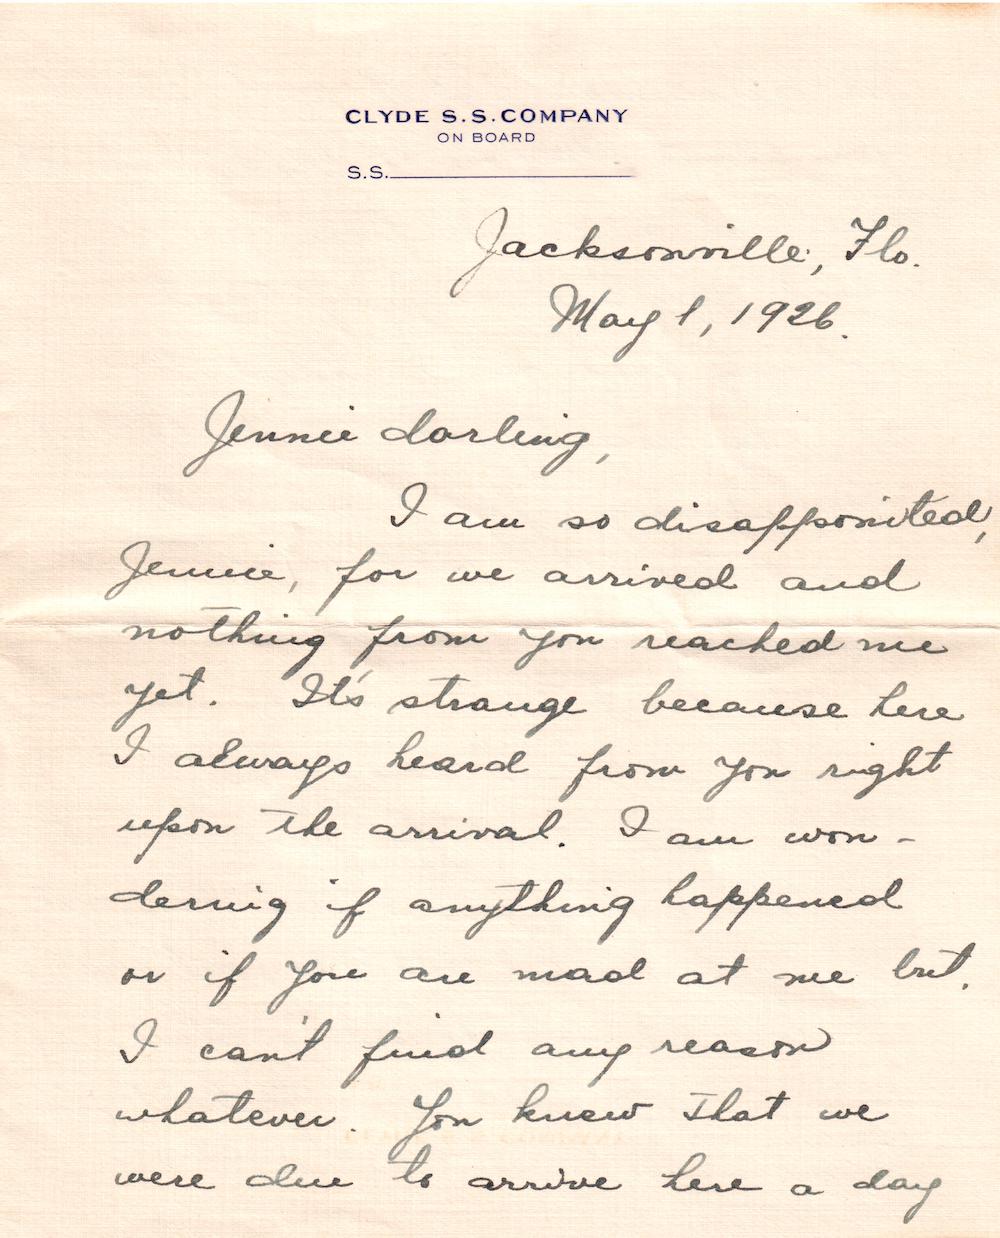 CLYDE S.S. COMPANY
ON BOARD
S.S.
Jacksonville, Fla.
May 1, 1926.
Jennie darling,
I am so disappointed,
Jennie, for we arrived and
nothing from you reached me
yet. It's strange because here
I always heard from you right
upon the arrival. I am won-
dering if anything happened
or if you are mad at me but.
I can't find any reason
whatever. You knew that we
were due to arrive here a day